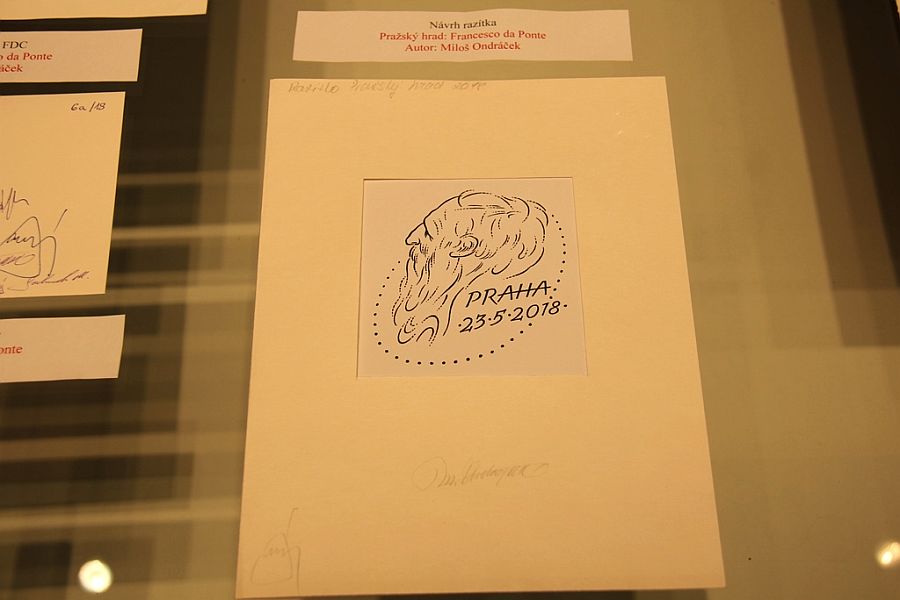 FDC
da Ponte
áček
6a/18
onte
Návrh razítka
Pražský hrad: Francesco da Ponte
Autor: Miloš Ondráček
Razítko Pražský hrad 2018
PRAHA
·23·5·2018·